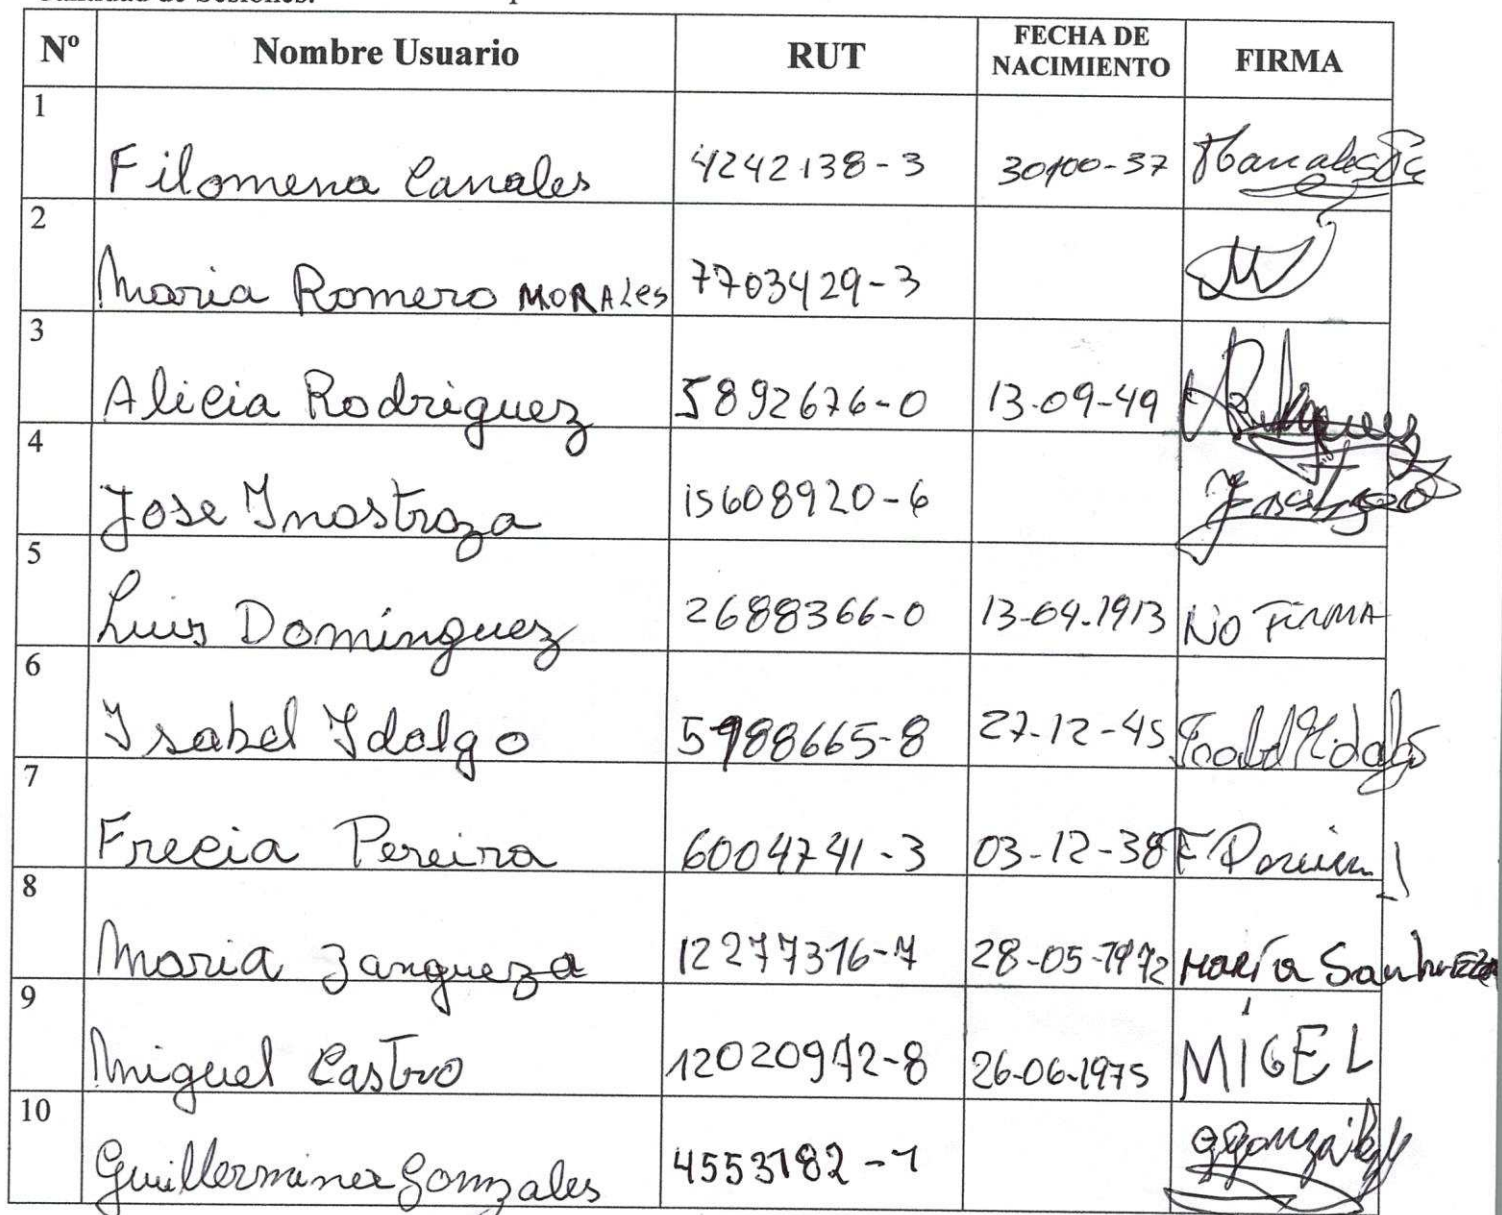 Cantidad de Sesiones:
Nº Nombre Usuario RUT FECHA DE NACIMIENTO FIRMA
1 Filomena Canales 4242138-3
2 Maria Romero MORALes 7703429-3
3 Alicia Rodriguez 5892676-0 13-09-49
4 Jose Inostroza 15608920-6
5 Luis Dominguez 2688366-0 13-04-1913 NO FIRMA
6 Isabel Idalgo 5988665-8 27-12-45 Isabel Hidalgo
7 Frecia Pereira 6004741-3 03-12-38 F Pereira
8 Maria Zangueza 12277316-7 28-05-1972 MARÍA Sanhueza
9 Miguel Castro 12020972-8 26-06-1975 MIGEL
10 Guillermina Gonzales 4553182-1